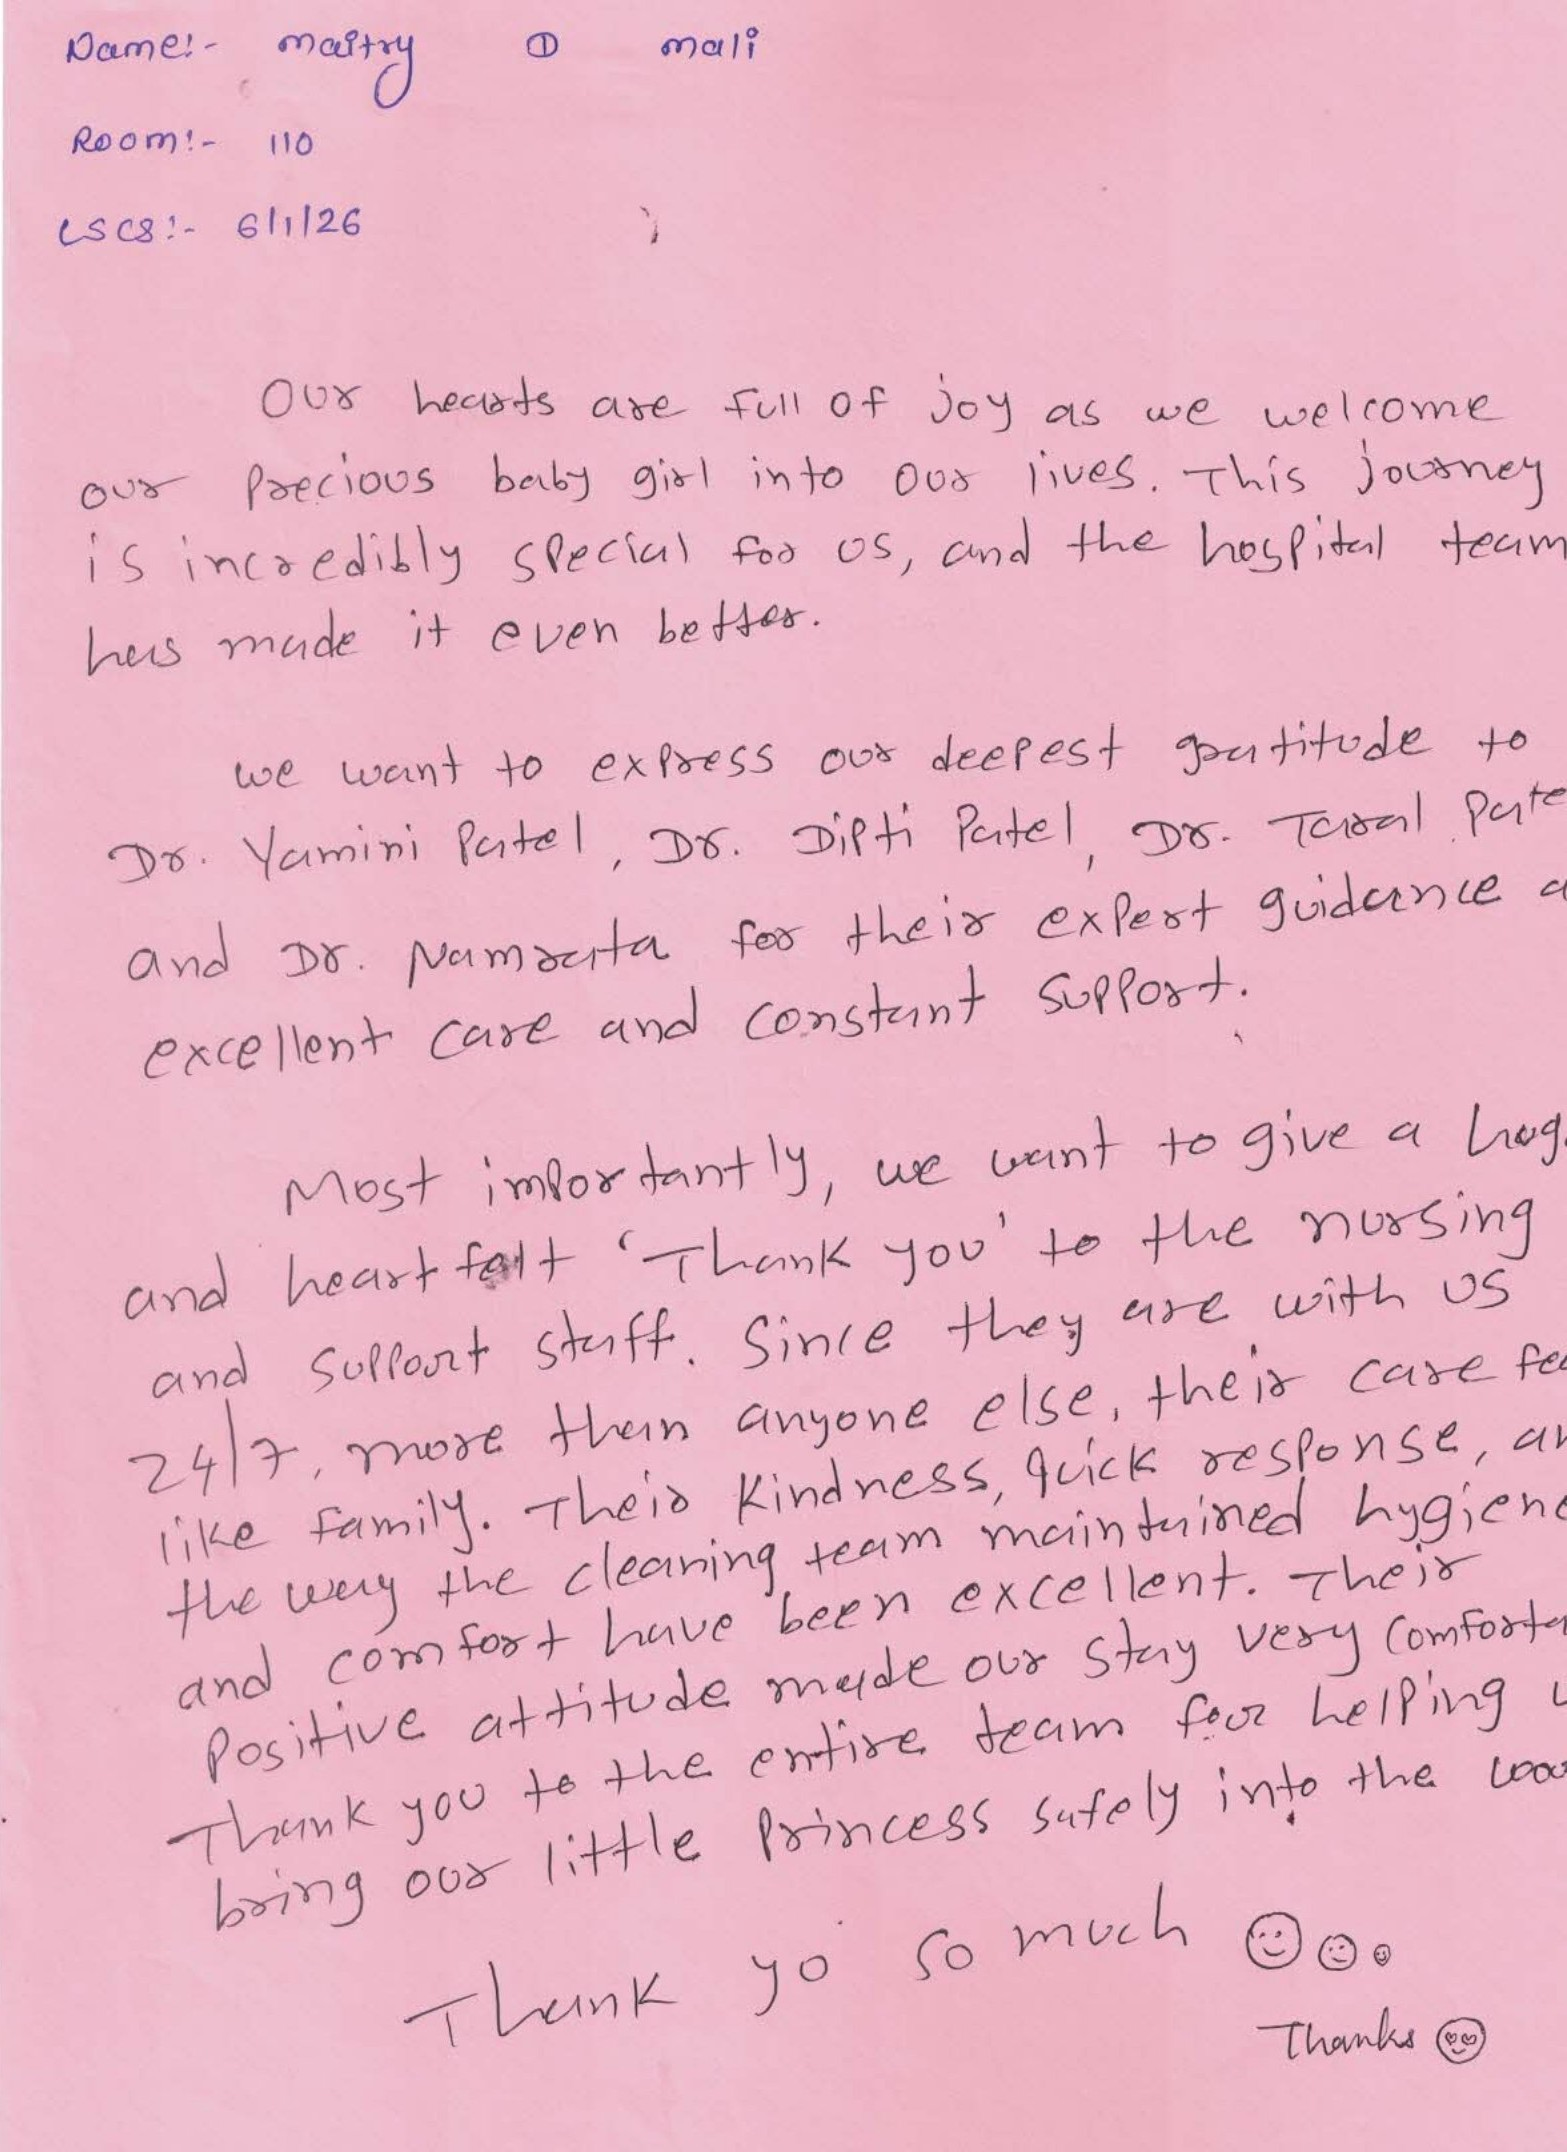 Name:- maitry D mali
Room:- 110
LSCS:- 6/1/26
Our hearts are full of joy as we welcome
our precious baby girl into our lives. This journey
is incredibly special for us, and the hospital team
has made it even better.
we want to express our deepest gratitude to
Dr. Yamini Patel, Dr. Dipti Patel, Dr. Taral Pate
and Dr. Namrata for their expert guidance a
excellent care and constant support.
Most importantly, we want to give a hug
and heartfelt 'Thank you' to the nursing
and support staff. Since they are with us
24/7, more than anyone else, their care fee
like family. Their kindness, quick response, an
the way the cleaning team maintained hygiene
and comfort have been excellent. Their
Positive attitude made our stay very comforta
Thank you to the entire team for helping u
bring our little princess safely into the wor
Thank yo so much ☺☺☺
Thanks 😍